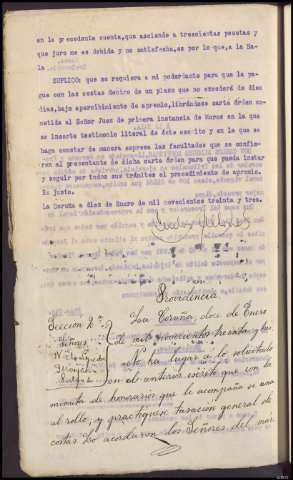 en la precedente cuenta, que asciende a trescientas pesetas y
que juro me es debida y no satisfecha, es por lo que, a la Sa-
la.
SUPLICO: que se requiera a mi poderdante para que la pa-
gue con las costas dentro de un plazo que no excederá de diez
días, bajo apercibimiento de apremio, librándose carta órden co-
metida al Señor Juez de primera instancia de Muros en la que
se inserte testimonio literal de éste escrito y en la que se
haga constar de manera expresa las facultades que se confie-
ren al presentante de dicha carta órden para que pueda instar
y seguir por todos sus trámites el procedimiento de apremio.
Es justo.
La Coruña a diez de Enero de mil novecientos treinta y tres.
Providencia
Sección 2ª
La Coruña, doce de Enero
Señores
de mil novecientos treinta y tres
No ha lugar a lo solicitado
en el anterior escrito que con la
minuta de honorarios que le acompaña se una
al rollo, y practíquese tasación general de
costas. Lo acordaron los Señores del mar